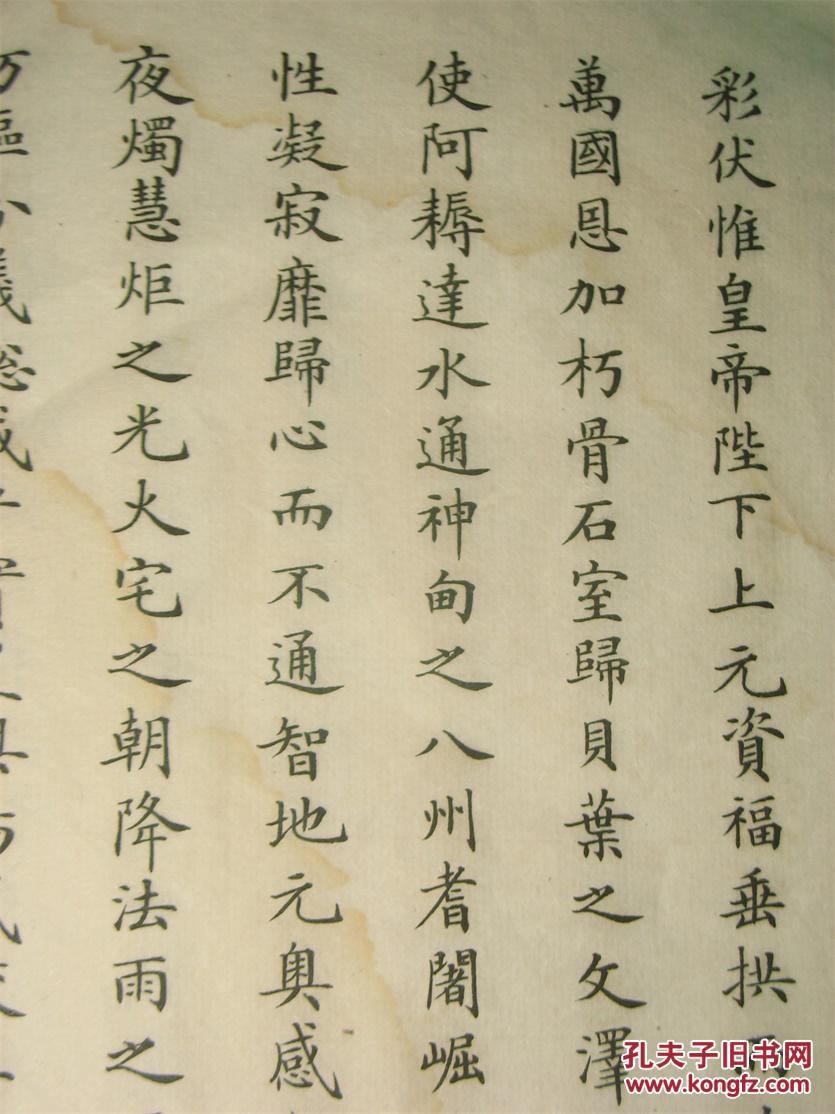 彩伏惟皇帝陛下上元資福垂拱而
萬國恩加朽骨石室歸貝葉之文澤
使阿耨達水通神甸之八州耆闍崛
性凝寂靡歸心而不通智地元奥感
夜燭慧炬之光火宅之朝降法雨之
孔夫子旧书网
www.kongfz.com